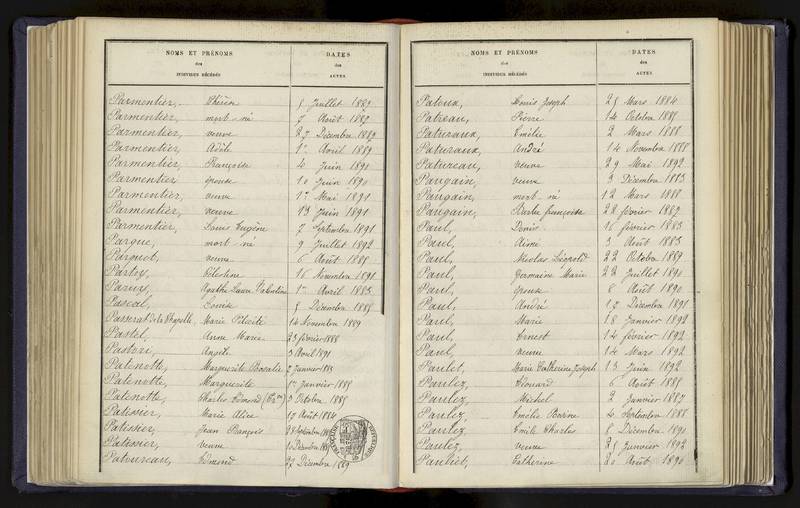 NOMS ET PRÉNOMS
des
INDIVIDUS DÉCÉDÉS
DATES
des
ACTES
Parmentier, Juillet 1889
Parmentier, mort-né 7 Août 1889
Parmentier, veuve 27 Décembre 1889
Parmentier, Adèle 1er Avril 1889
Parmentier, Françoise 4 Juin 1890
Parmentier, épouse 10 Juin 1890
Parmentier, veuve 1er Mai 1891
Parmentier, veuve 13 Juin 1891
Parmentier, Louis Eugène 7 Septembre 1891
Parque, mort-né 9 Juillet 1892
veuve 6 Août 1888
Célestine 16 Novembre 1891
Agathe Laure Valentine 1er Avril 1883
Pascal, Louise Décembre 1885
Passerat de la Chapelle, Marie Félicité 14 Novembre 1889
Pastel, Anne Marie 23 février 1888
Pastori, Angèle 3 Avril 1891
Patenotte, Marguerite Rosalie 2 Janvier 1883
Patenotte, Marguerite 1er Janvier 1885
Patenotte, Charles Edmond 3 Octobre 1885
Patissier, Marie Alice 17 Août 1884
Patissier, Jean François Septembre
Patissier, veuve Décembre
Patoureau, Edmond 27 Décembre 1889
NOMS ET PRÉNOMS
des
INDIVIDUS DÉCÉDÉS
DATES
des
ACTES
Patoux, Louis Joseph 25 Mars 1884
Patreau, Pierre 14 Octobre 1885
Patureaux, Emélie 2 Mars 1888
Patureaux, André 14 Novembre 1888
Patureau, veuve 29 Mai 1892
Paugain, veuve 3 Décembre 1883
Paugain, mort-né 12 Mars 1888
Paugain, françoise 22 février 1889
Paul, Denis 16 février 1883
Paul, Aimé 3 Août 1883
Paul, Nicolas Léopold 22 Octobre 1889
Paul, Germaine Marie 22 Juillet 1890
Paul, épouse 8 Août 1890
Paul, André 17 Décembre 1891
Paul, Marie 18 Janvier 1892
Paul, Ernest 14 février 1892
Paul, veuve 14 Mars 1892
Paulet, Marie Catherine Joseph 13 Juin 1892
Paulez, Léonard 6 Août 1885
Paulez, Michel 2 Janvier 1887
Paulez, Emélie 4 Septembre 1888
Paulez, Emile Charles 8 Décembre 1890
Paulez, veuve 28 Janvier 1892
Pauliet, Catherine 20 Août 1890